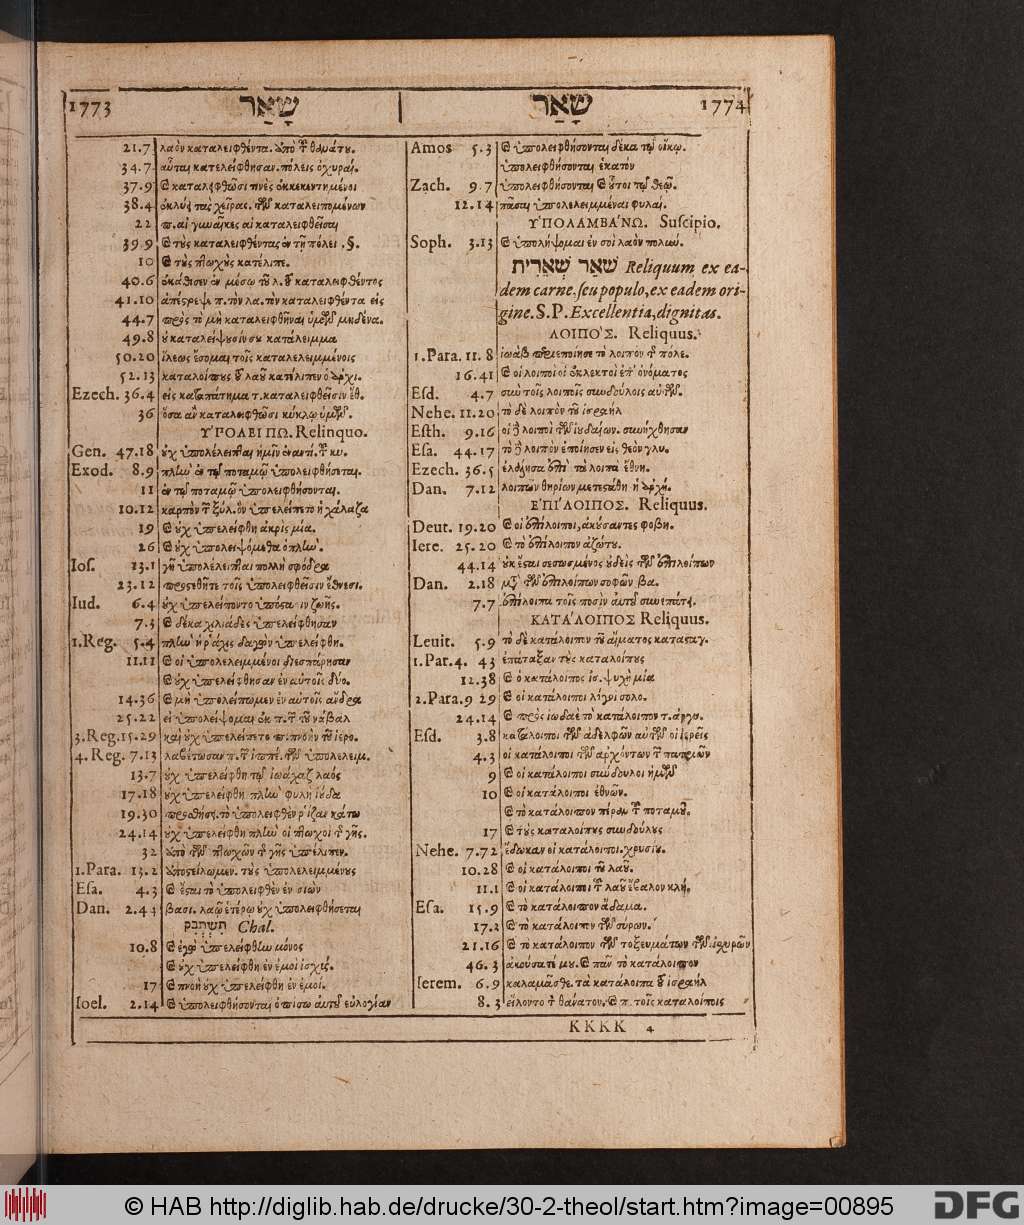 1773 שָׁאַר
שָׁאַר 1774
21.7 λαὸν καταλειφθέντα. ἀπὸ τ͂ θανάτου.
34.7 αὗται κατελείφθησαν. πόλεις ὀχυραί.
37.9 καταλειφθῶσί τινὲς ἐκκεκεντημένοι
38.4 ἐκλύει τὰς χεῖρας. τῶν καταλειπομένων
22 π. αἱ γυναῖκες αἱ καταλειφθεῖσαι
39.9 τοὺς καταλειφθέντας ἐν τῇ πόλει .§.
10 τοὺς πτωχοὺς κατέλιπε.
40.6 ἐκάθισεν ἐν μέσῳ τοῦ λ. τοῦ καταλειφθέντος
41.10 ἀπέστρεψε π. τὸν λα. τὸν καταλειφθέντα εἰς
44.7 πρὸς τὸ μὴ καταλειφθῆναι ὑμῶν μηδένα.
49.8 οὐ καταλείψουσίν σοι κατάλειμμα
50.20 ἵλεως ἔσομαι τοῖς καταλελειμμένοις
52.13 καταλοίπους τοῦ λαοῦ κατέλιπεν ὁ ἀρχι.
Ezech. 36.4 εἰς καταπάτημα τ. καταλειφθεῖσιν ἔθ.
36 ὅσα ἂν καταλειφθῶσι κύκλῳ ὑμῶν.
ΥΠΟΛΕΙΠΩ. Relinquo.
Gen. 47.18 οὐχ ὑπολέλειπται ἡμῖν ἐναντί. τ͂ κυ.
Exod. 8.9 πλὴν ἐν τῷ ποταμῷ ὑπολειφθήσεται.
11 ἐν τῷ ποταμῷ ὑπολειφθήσονται.
10.12 καρπὸν τ͂ ξύλ. ὃν ὑπελείπετο ἡ χάλαζα
19 οὐχ ὑπελείφθη ἀκρὶς μία.
26 οὐχ ὑπολειψόμεθα ὁπλήν.
Ios. 13.1 γῆ ὑπολέλειπται πολλὴ σφόδρα
23.12 προςτεθῆτε τοῖς ὑπολειφθεῖσιν ἔθνεσι.
Iud. 6.4 οὐχ ὑπελείποντο ὑπόστασιν ζωῆς.
7.3 δέκα χιλιάδες ὑπελείφθησαν
1.Reg. 5.4 πλὴν ἡ ῥάχις δαγὼν ὑπελείφθη.
11.11 οἱ ὑπολελειμμένοι διεσπάρησαν
οὐχ ὑπελείφθησαν ἐν αὐτοῖς δύο.
14.36 μὴ ὑπολείπωμεν ἐν αὐτοῖς ἄνδρα
25.22 εἰ ὑπολείψομαι ἐκ π. τ͂ τοῦ νάβαλ
3.Reg. 15.29 καὶ οὐχ ὑπελείπετο π. πνοὴν τοῦ ἱερο.
4.Reg. 7.13 λαβέτωσαν π. τ͂ ἵππέ. τῶν ὑπολελειμ.
13.7 οὐχ ὑπελείφθη τῷ ἰωάχαζ λαός
17.18 οὐχ ὑπελείφθη πλὴν φυλὴ ἰούδα
19.30 προσθήσει. τὸ ὑπολειφθὲν ῥίζαν κάτω
24.14 οὐχ ὑπελείφθη πλὴν οἱ πτωχοὶ τ͂ γῆς.
32 ἀπὸ τῶν πτωχῶν τ͂ γῆς ὑπέλιπεν.
1.Para. 13.2 ἀποστείλωμεν. τοὺς ὑπολελειμμένους
Esa. 4.3 ἔσται τὸ ὑπολειφθὲν ἐν σιὼν
Dan. 2.44 βασι. λαῷ ἑτέρῳ οὐχ ὑπολειφθήσεται
תִשְׁתְּבִק Chal.
10.8 ἐγὼ ὑπελείφθην μόνος
οὐχ ὑπελείφθη ἐν ἐμοὶ ἰσχύς.
17 πνοὴ οὐχ ὑπελείφθη ἐν ἐμοί.
Ioel. 2.14 ὑπολειφθήσονται ὀπίσω αὐτοῦ εὐλογίαν
Amos 5.3 ὑπολειφθήσονται δέκα τῷ οἴκῳ.
ὑπολειφθήσονται ἑκατόν
Zach. 9.7 ὑπολειφθήσονται οὗτοι τῷ θεῷ.
12.14 πᾶσαι ὑπολελειμμέναι φυλαί.
ΥΠΟΛΑΜΒΑΝΩ. Suscipio.
Soph. 3.13 ὑπολήψομαι ἐν σοὶ λαὸν πολύν.
שְׁאָר שְׁאֵרִית Reliquum, ex ea-
dem carne, seu populo, ex eadem ori-
gine. S.P. Excellentia, dignitas.
ΛΟΙΠΟΣ. Reliquus.
1.Para. 11.8 ἰωὰβ περιεποίησε τὸ λοιπὸν τ͂ πόλε.
16.41 οἱ λοιποὶ οἱ ἐκλεκτοὶ ἐπ' ὀνόματος
Esd. 4.7 σὺν τοῖς λοιποῖς συνδούλοις αὐτῶν.
Nehe. 11.20 τὸ δὲ λοιπὸν τοῦ ἰσραήλ
Esth. 9.16 οἱ δὲ λοιποὶ τῶν ἰουδαίων. συνήχθησαν
Esa. 44.17 τὸ δὲ λοιπὸν ἐποίησεν εἰς θεὸν γλυ.
Ezech. 36.5 ἐλάλησα ἐπὶ τὰ λοιπὰ ἔθνη.
Dan. 7.12 λοιπῶν θηρίων μετεστάθη ἡ ἀρχή.
ΕΠΙΛΟΙΠΟΣ. Reliquus.
Deut. 19.20 οἱ ἐπίλοιποι, ἀκούσαντες φοβη.
Iere. 25.20 τὸ ἐπίλοιπον ἀζώτου.
44.14 οὐκ ἔσται σεσωσμένος οὐδεὶς τῶν ἐπιλοίπων
Dan. 2.18 μετὰ τῶν ἐπιλοίπων σοφῶν βα.
7.7 ἐπίλοιπα τοῖς ποσὶν αὐτοῦ συνεπάτει.
ΚΑΤΑΛΟΙΠΟΣ Reliquus.
Leuit. 5.9 τὸ δὲ κατάλοιπον τοῦ αἵματος καταστραγ.
1.Par. 4. 43 ἐπάταξαν τοὺς καταλοίπους
12.38 ὁ κατάλοιπος ἰσ. ψυχὴ μία
2.Para. 9 29 οἱ κατάλοιποι λόγοι σολο.
24.14 πρὸς ἰωδαὲ τὸ κατάλοιπον τ. ἀργυ.
Esd. 3.8 κατάλοιποι τῶν ἀδελφῶν αὐτῶν οἱ ἱερεῖς
4.3 οἱ κατάλοιποι τῶν ἀρχόντων τ͂ πατριῶν
9 οἱ κατάλοιποι σύνδουλοι ἡμῶν
10 οἱ κατάλοιποι ἐθνῶν.
τὸ κατάλοιπον πέραν τ͂ ποταμοῦ.
17 τοὺς καταλοίπους συνδούλους
Nehe. 7.72 ἔδωκαν οἱ κατάλοιποι. χρυσίου.
10.28 οἱ κατάλοιποι τοῦ λαοῦ.
11.1 οἱ κατάλοιποι τ͂ λαοῦ ἔβαλον κλή.
Esa. 15.9 τὸ κατάλοιπον ἀδαμα.
17.2 τὸ κατάλοιπον τῶν σύρων.
21.16 τὸ κατάλοιπον τῶν τοξευμάτων τῶν. ἰσχυρῶν
46.3 ἀκούσατέ μου. πᾶν τὸ κατάλοιπον
Ierem. 6.9 καλαμᾶσθε. τὰ κατάλοιπα τοῦ ἰσραήλ
8.3 εἵλοντο τ͂ θάνατον. π. τοῖς καταλοίποις
KKKK 4
© HAB http://diglib.hab.de/drucke/30-2-theol/start.htm?image=00895
DFG